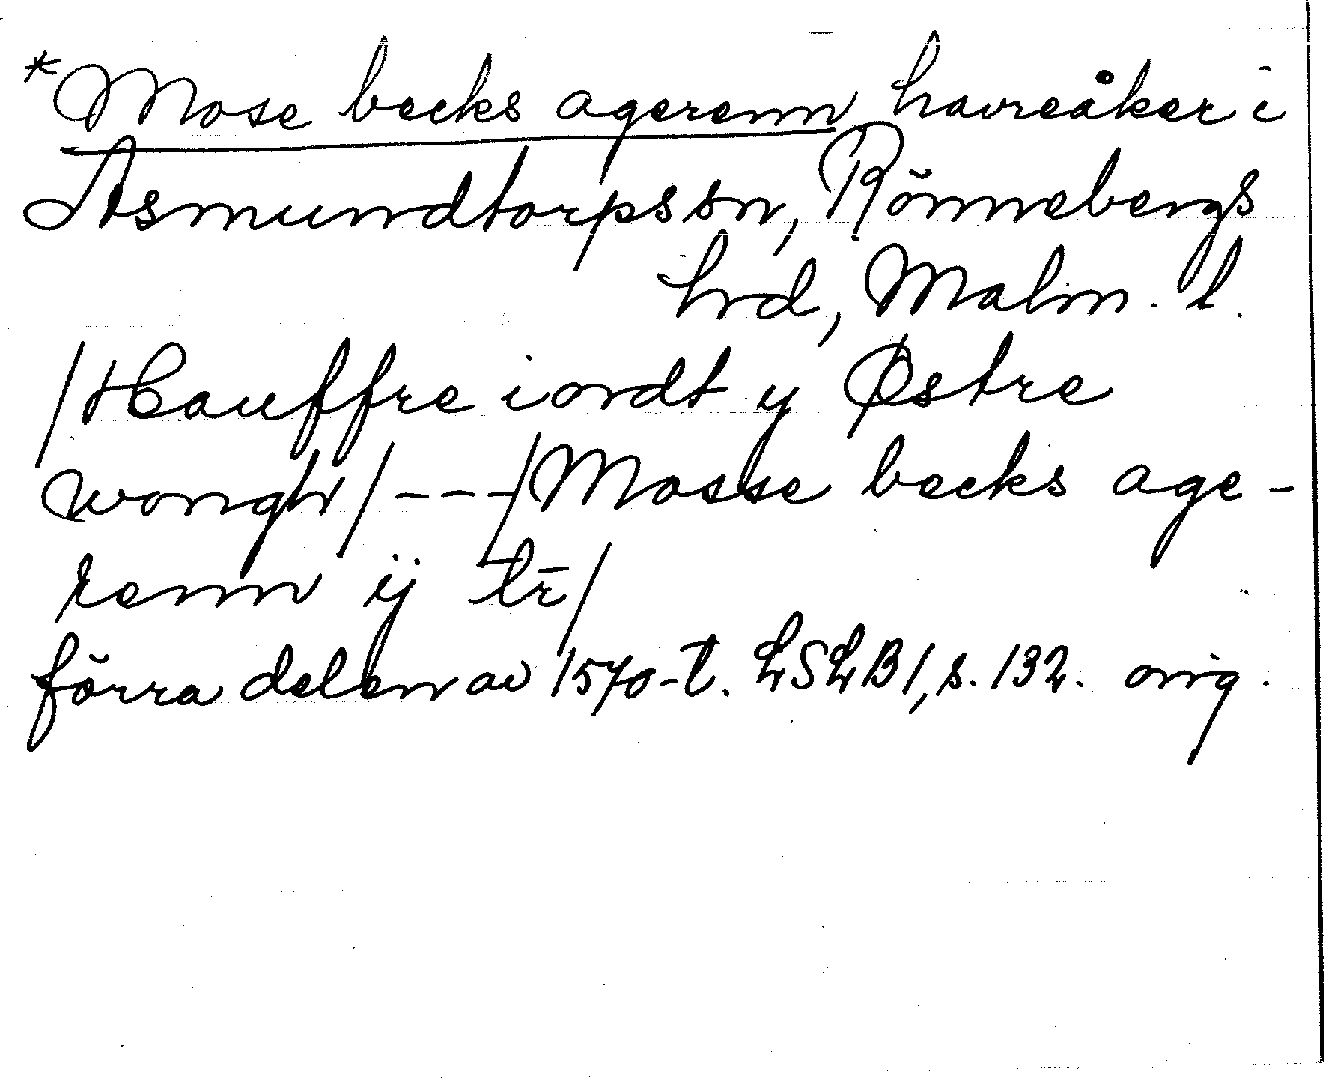 *Mose becks agerenn havreåker i
Asmundtorps sn, Rönnebergs
hrd, Malm. l.
/Hauffre iordt y Østre
wongh/---/Mosse becks age-
renn ij tr̄/
förra delen av 1570-t. LSLB1, s. 132. orig.